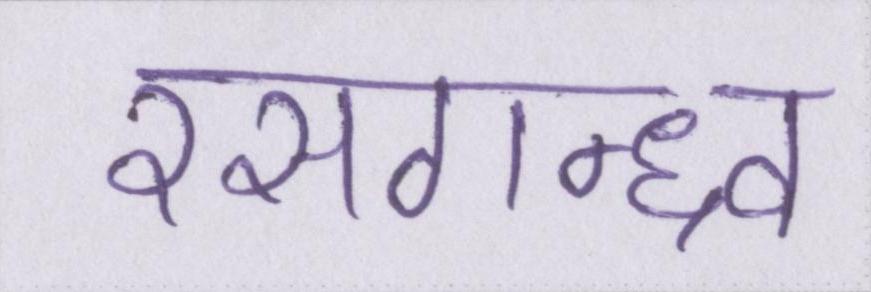 रसगन्ध्रव